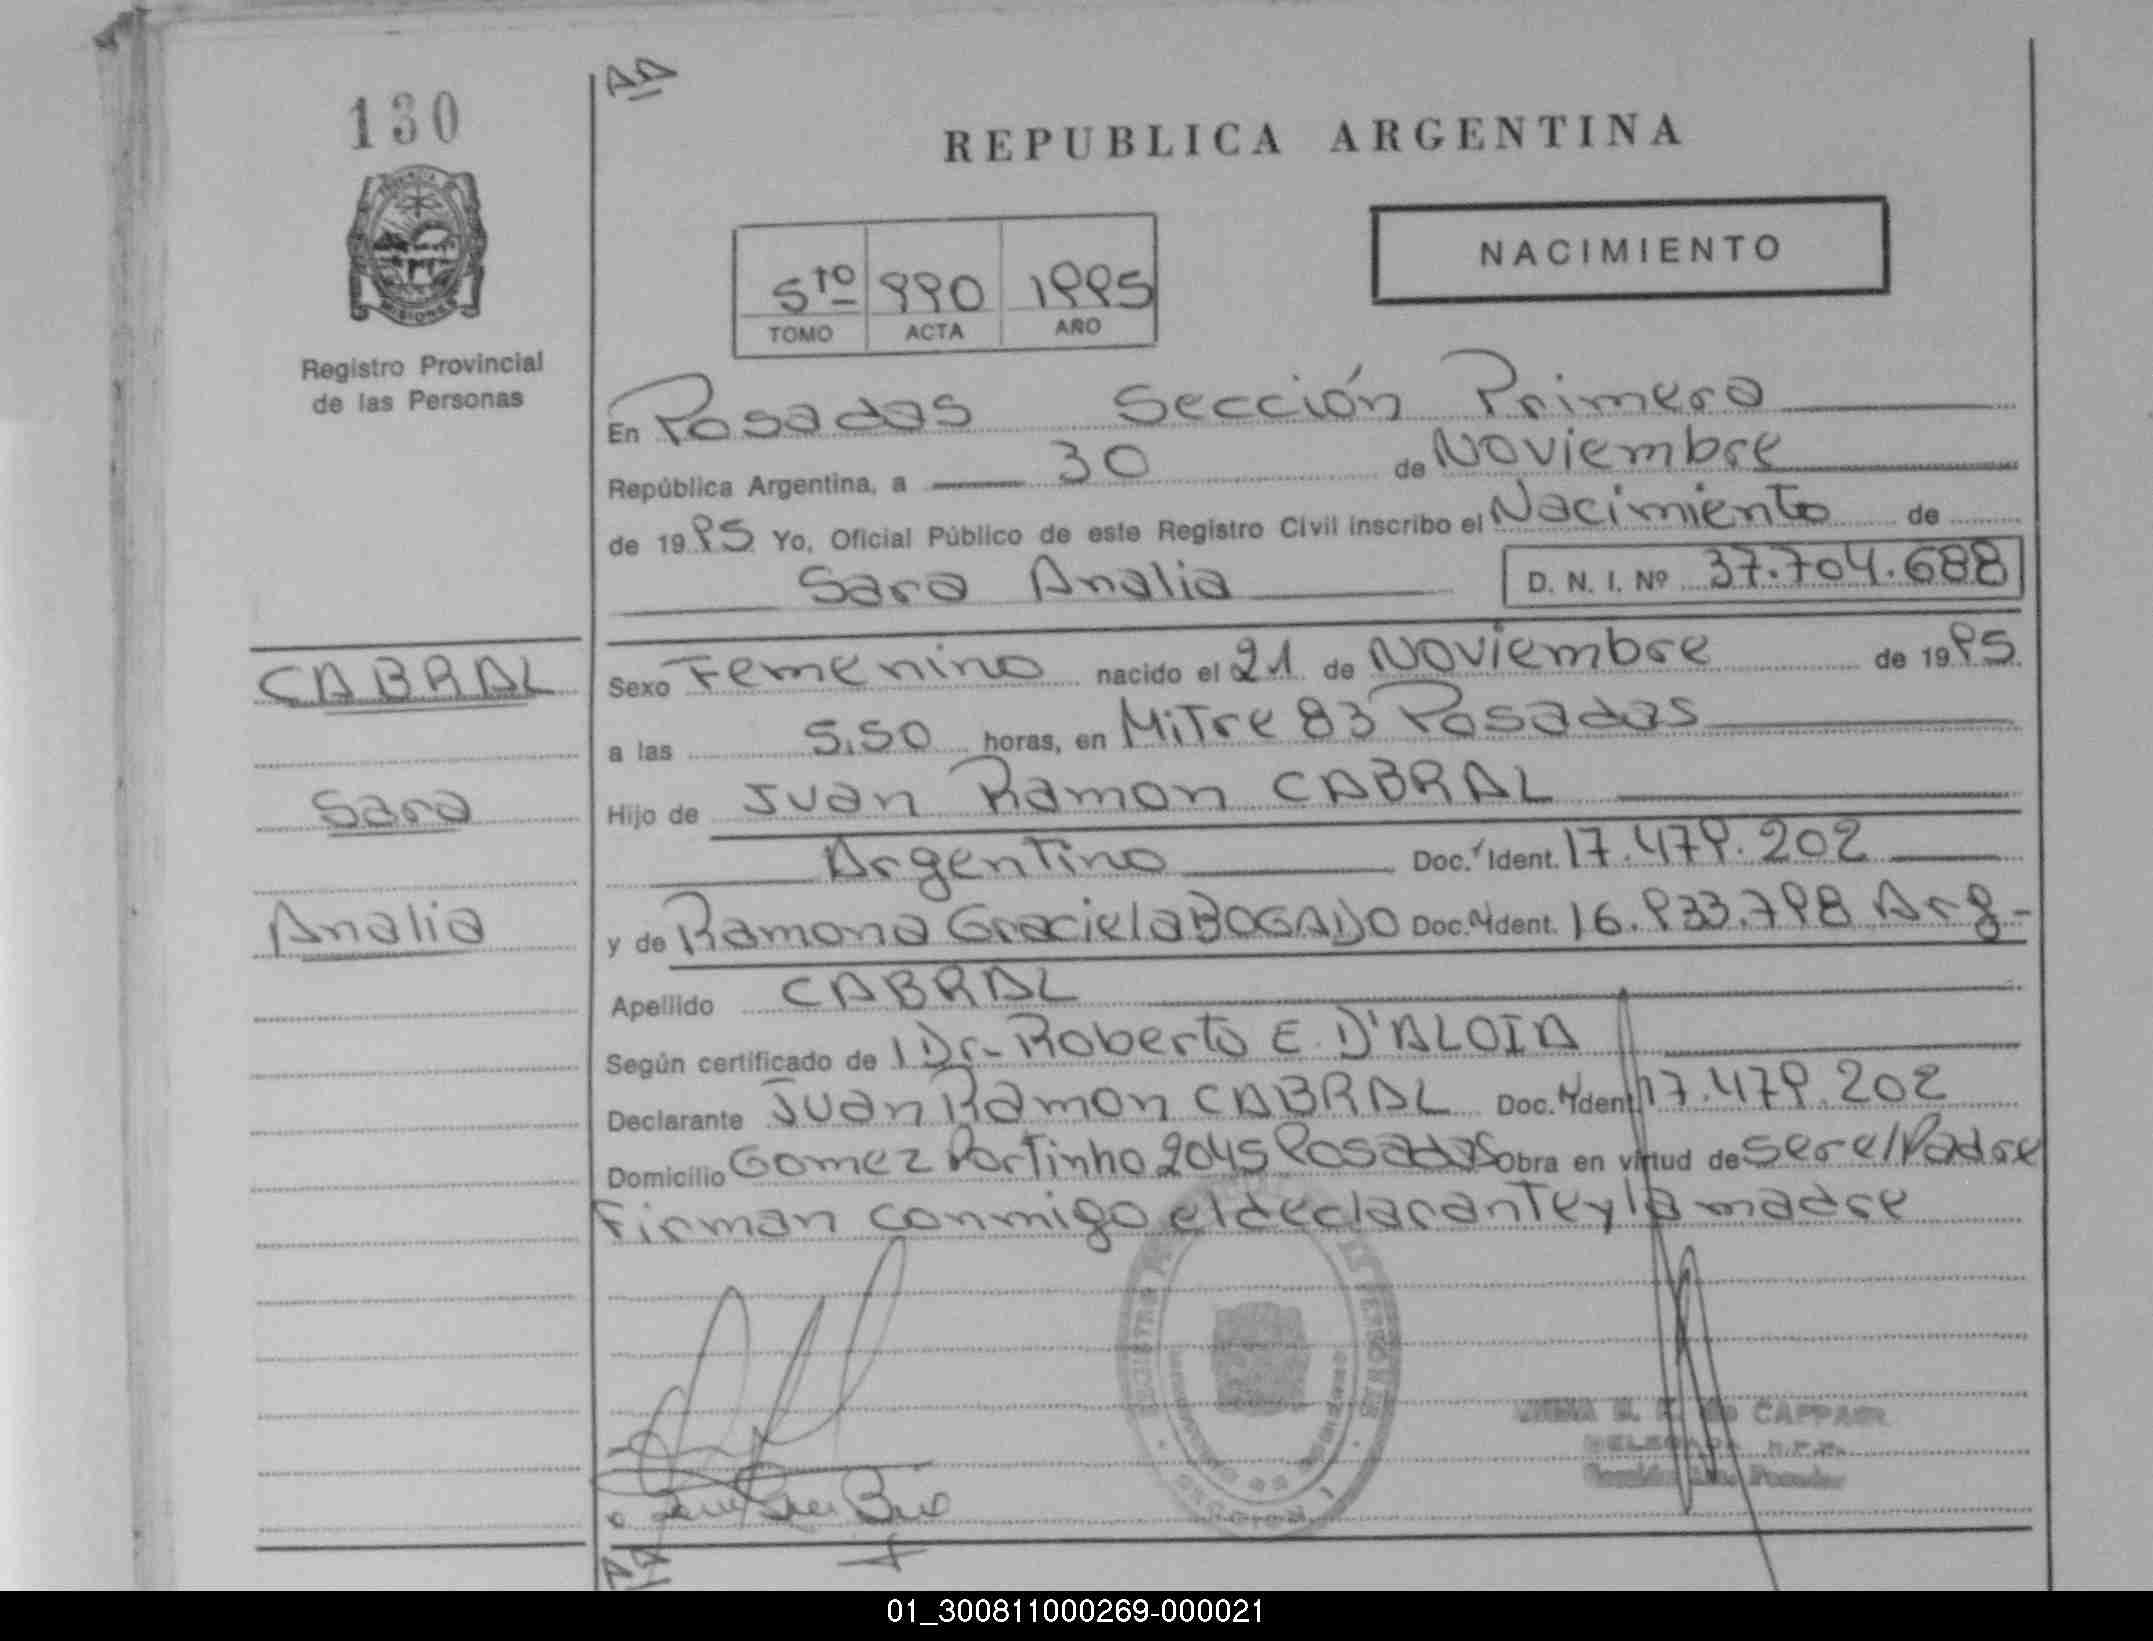 130
REPUBLICA ARGENTINA
NACIMIENTO
5to 990 1995
TOMO ACTA AÑO
Registro Provincial
de las Personas
En Posadas Sección Primera
República Argentina, a 30 de Noviembre
de 1995 Yo, Oficial Público de este Registro Civil inscribo el Nacimiento de
Sara Analia D. N. I. Nº 37.704.688
CABRAL
Sexo Femenino nacido el 21 de Noviembre de 1995
a las 5,50 horas, en Mitre 83 Posadas
Sara
Hijo de Juan Ramon CABRAL
Argentino Doc. Ident. 17.479.202
Analia
y de Ramona Graciela BOGADO Doc. Ident. 16.933.798 Arg-
Apellido CABRAL
Según certificado de Dr. Roberto E. D'ALOIA
Declarante Juan Ramon CABRAL Doc. Ident. 17.479.202
Domicilio Gomez Portinho 2045 Posadas Obra en virtud de ser el Padre
Firman conmigo el declarante y la madre
CAPPARI
DELEGADA R.P.P.
01_300811000269-000021